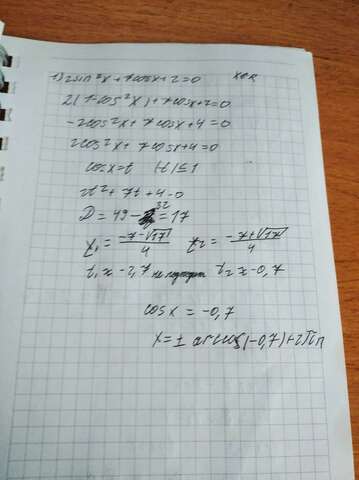 1) 2sin²x + 7cosx + 2 = 0
2(1-cos²x) + 7cosx + 2 = 0
-2cos²x + 7cosx + 4 = 0
2cos²x + 7cosx + 4 = 0
cosx = t |t| ≤ 1
2t² + 7t + 4 = 0
D = 49 - 32 = 17
t₁ = (-7-√17)/4 t₂ = (-7+√17)/4
t₁ ≈ -2,7 не подходит t₂ ≈ -0,7
cosx = -0,7
x = ± arccos(-0,7) + 2πn